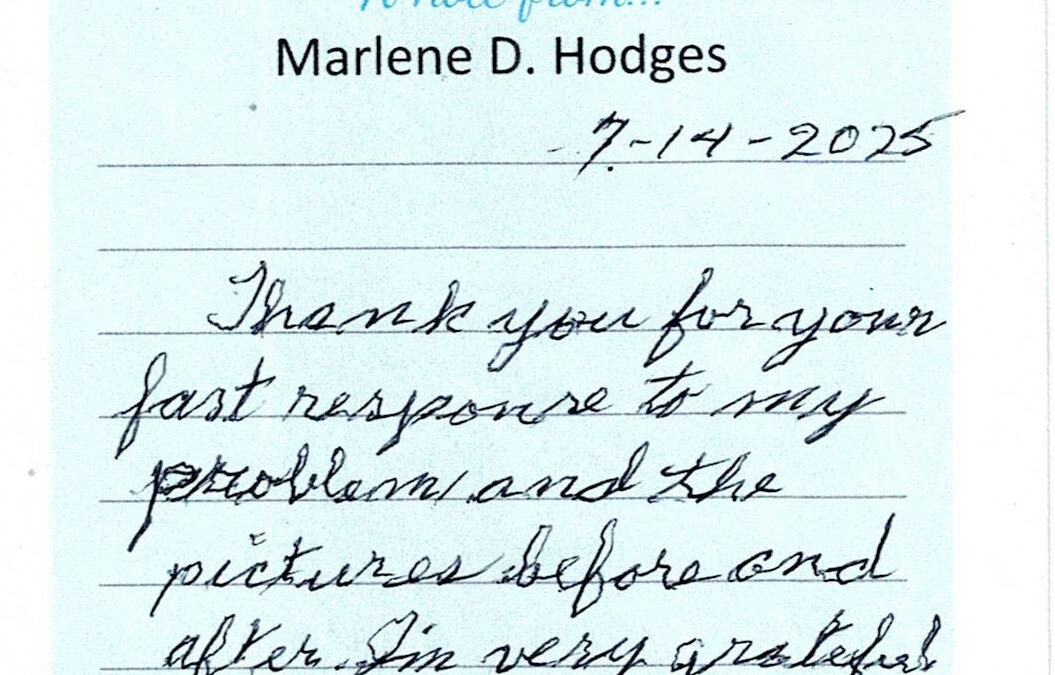 A note from...
Marlene D. Hodges
7-14-2025
Thank you for your
fast response to my
problem and the
pictures before and
after. I'm very grateful